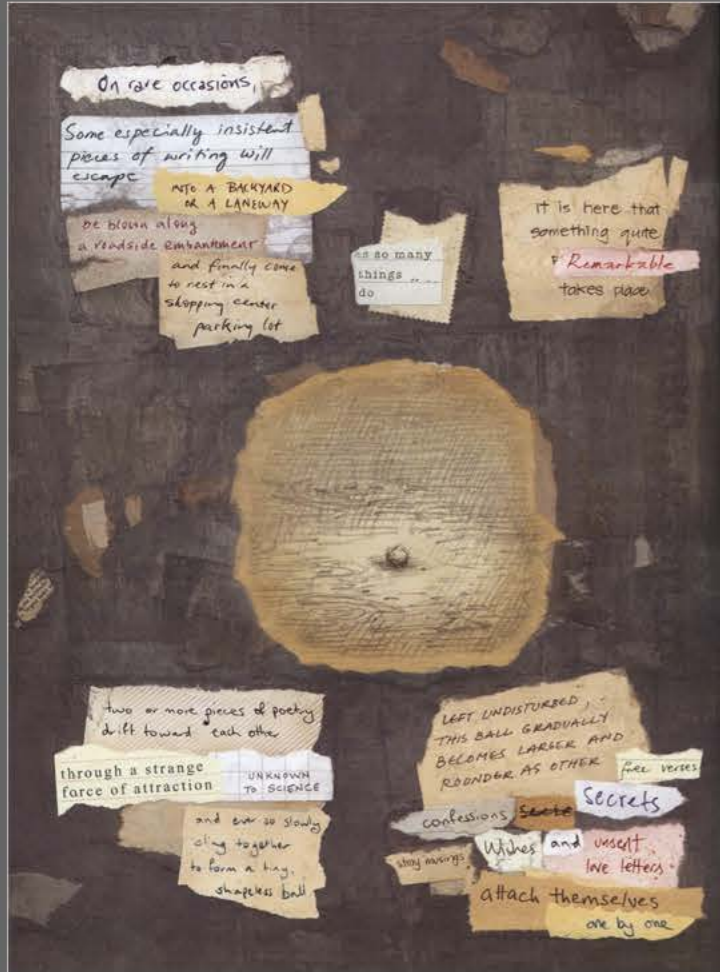 On rare occasions,
Some especially insistent
pieces of writing will
escape
INTO A BACKYARD
OR A LANEWAY
be blown along
a roadside embankment
and finally come
to rest in a
shopping center
parking lot
as so many
things
do
it is here that
something quite
Remarkable
takes place
two or more pieces of poetry
drift toward each other
through a strange
force of attraction
UNKNOWN
TO SCIENCE
and ever so slowly
cling together
to form a tiny,
shapeless ball
LEFT UNDISTURBED,
THIS BALL GRADUALLY
BECOMES LARGER AND
ROUNDER AS OTHER
free verses
confessions
Secrets
stray musings
Wishes and unsent
love letters
attach themselves
one by one